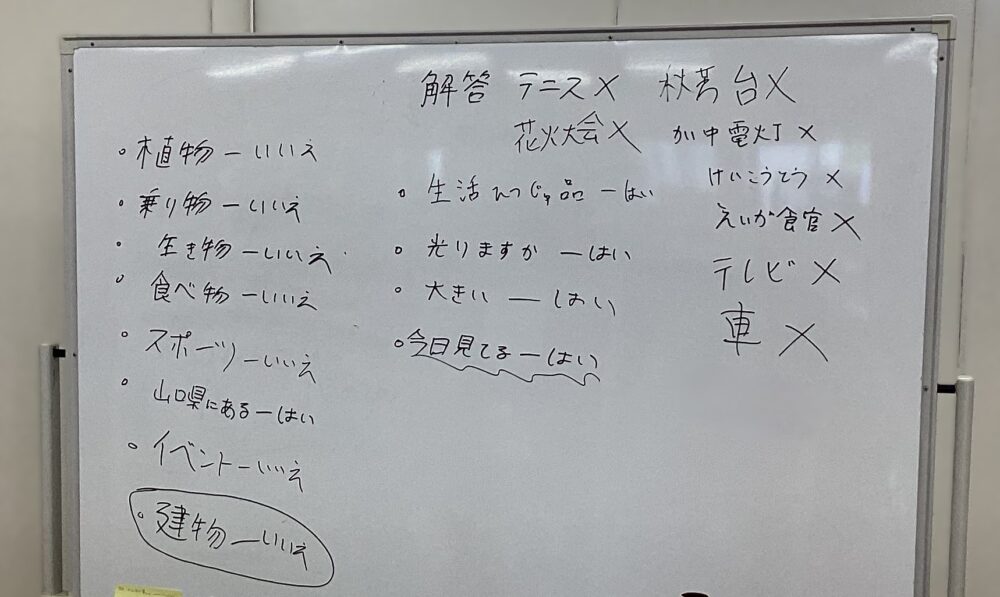 解答 テニス× 秋芳台×
花火大会× かい中電灯×
けいこうとう×
えいが食官×
テレビ×
車×
・植物ーいいえ
・乗り物ーいいえ
・生き物ーいいえ
・食べ物ーいいえ
・スポーツーいいえ
・山口県にあるーはい
・イベントーいいえ
・建物ーいいえ
・生活ひつじゅ品ーはい
・光りますかーはい
・大きいーはい
・今日見てるーはい